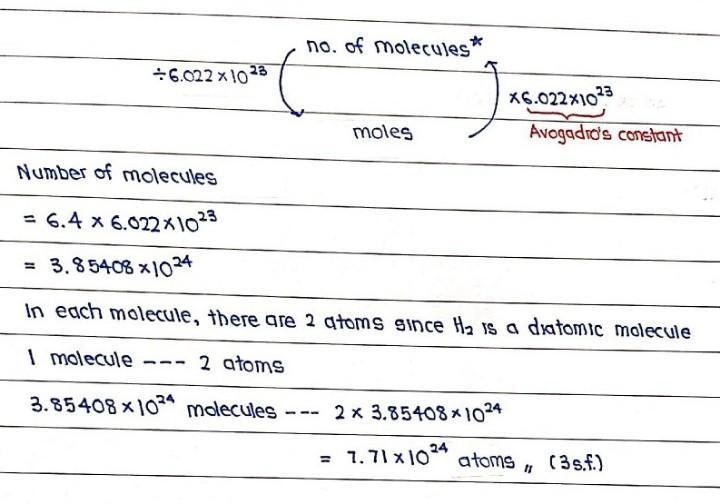 no. of molecules*
÷6.022×10²³
×6.022×10²³
moles
Avogadro's constant
Number of molecules
= 6.4 × 6.022×10²³
= 3.85408×10²⁴
In each molecule, there are 2 atoms since H₂ is a diatomic molecule
1 molecule --- 2 atoms
3.85408×10²⁴ molecules --- 2 × 3.85408×10²⁴
= 7.71×10²⁴ atoms ,, (3s.f.)